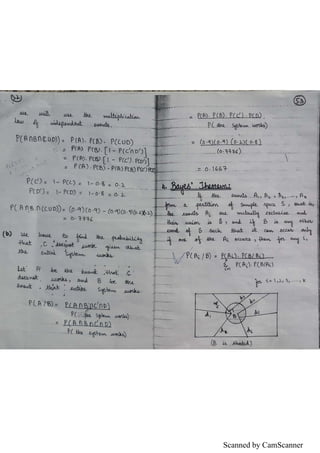 52
we will use the multiplication
law of independent events.
P(A∩B∩(C∪D)) = P(A). P(B). P(C∪D)
= P(A). P(B). [1 - P(C'∩D')]
= P(A). P(B) [1 - P(C'). P(D')]
= P(A). P(B) - P(A) P(B) P(C') P(D')
P(C') = 1 - P(C) = 1 - 0.8 = 0.2
P(D') = 1 - P(D) = 1 - 0.8 = 0.2
P(A∩B∩(C∪D)) = (0.9)(0.9) - (0.9)(0.9)(0.2)(0.2)
= 0.7776
(b) We have to find the probability
that C doesnot work given that
the entire system works
Let A be the event that C
doesnot works, and B be the
event, that entire system works
P(A/B) = P(A∩B∩C'∩D)
P(the system works)
= P(A∩B∩C'∩D)
P(the system works)
53
= P(A). P(B). P(C'). P(D)
P(the system works)
= (0.9)(0.9)(0.2)(0.8)
(0.7776)
= 0.1667
Bayes' Theorem:
If the events A₁, A₂, ..., Aₖ
form a partition of sample space S, that is,
the events Aᵢ are mutually exclusive and
their union is S; and if B is any other
event of S such that it can occur only
if one of the Aᵢ occurs, then for any i,
P(Aᵢ/B) = P(Aᵢ). P(B/Aᵢ)
Σ P(Aᵢ). P(B/Aᵢ)
i=1
for i = 1, 2, 3, ..., k
B
(B is shaded)
Scanned by CamScanner